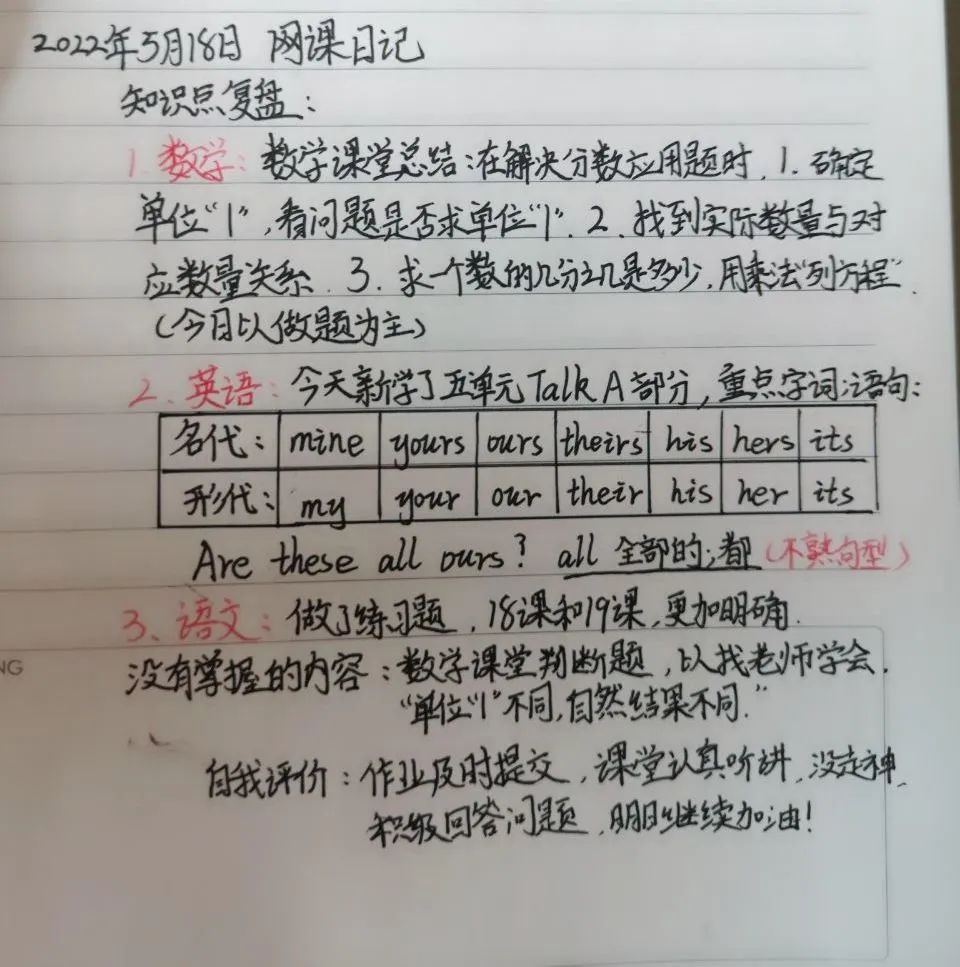 2022年5月18日 网课日记
知识点复盘：
1.数学：数学课堂总结：在解决分数应用题时，1.确定
单位“1”，看问题是否求单位“1”.2.找到实际数量与对
应数量关系.3.求一个数的几分之几是多少，用乘法“列方程”.
（今日以做题为主）
2.英语：今天新学了五单元Talk A部分，重点字词；语句：
名代： mine yours ours theirs his hers its
形代： my your our their his her its
Are these all ours? all 全部的；都（不熟句型）
3、语文：做了练习题，18课和19课，更加明确.
NG
没有掌握的内容：数学课堂判断题，以找老师学会.
“单位“1”不同，自然结果不同.”
自我评价：作业及时提交，课堂认真听讲，没走神，
积级回答问题，明日继续加油！